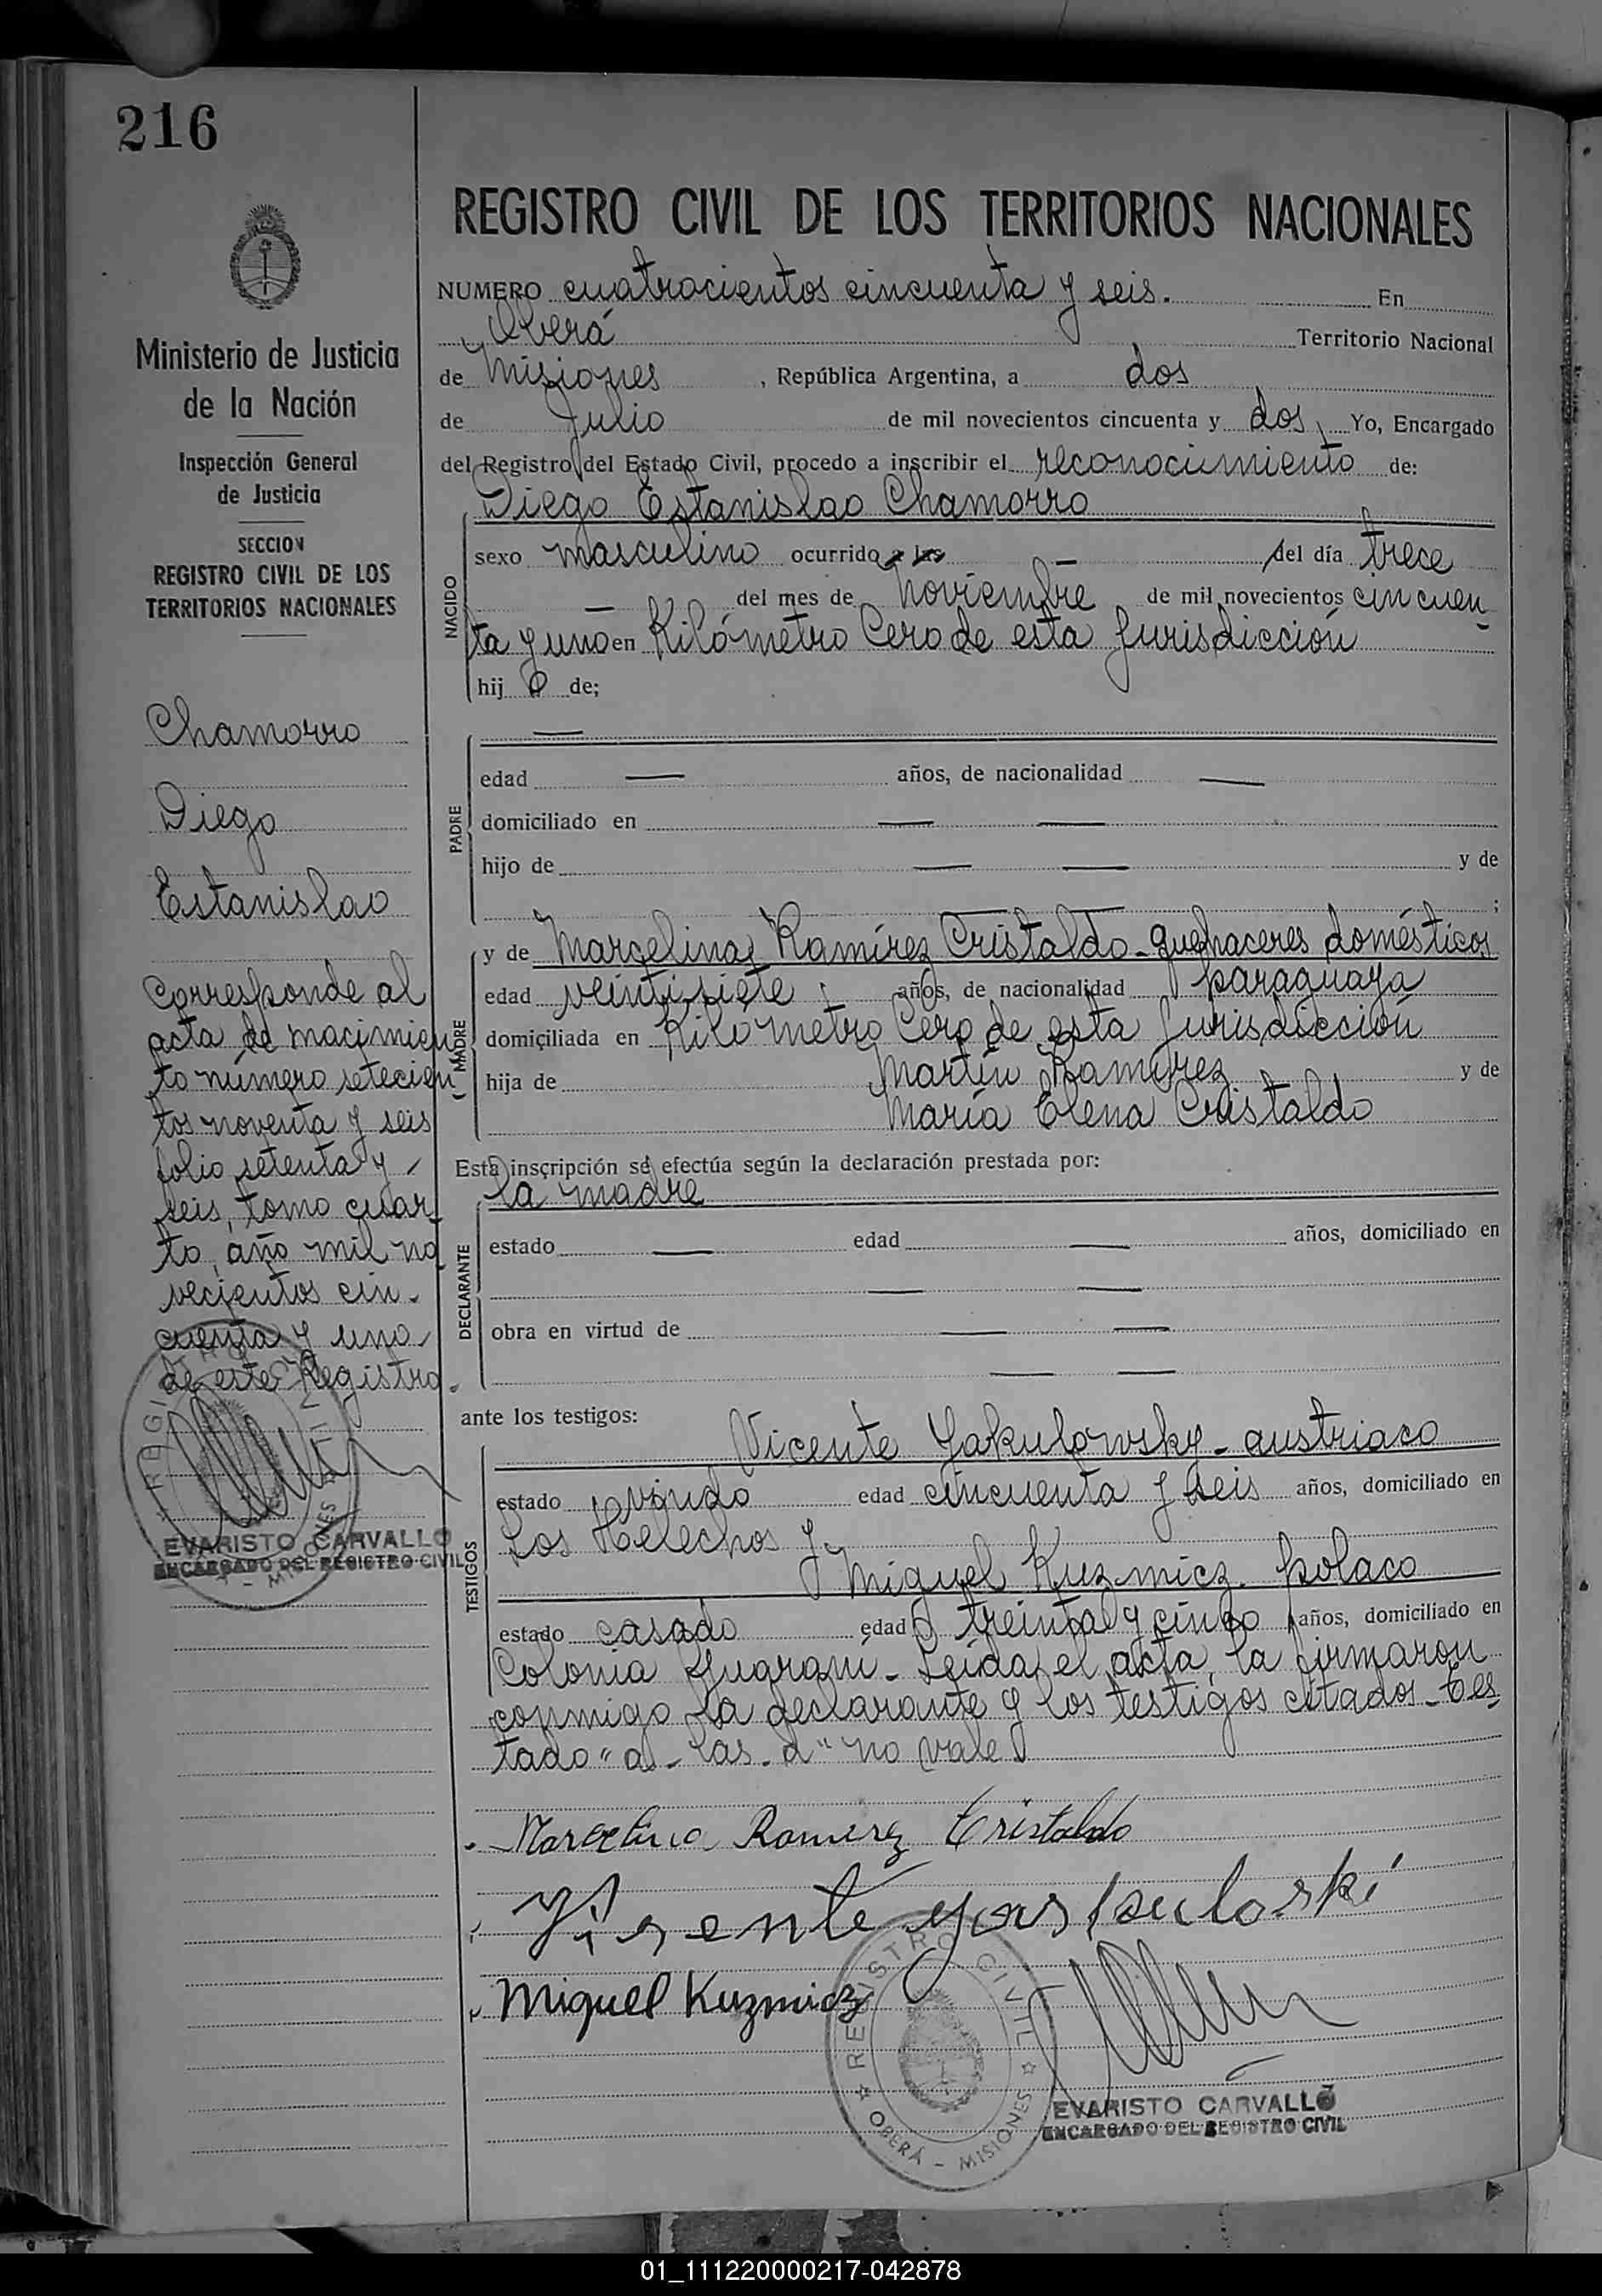 216
Ministerio de Justicia
de la Nación
Inspección General
de Justicia
SECCION
REGISTRO CIVIL DE LOS
TERRITORIOS NACIONALES
Chamorro
Diego
Estanislao
Corresponde al
acta de nacimien
to número setecien
tos noventa y seis
folio setenta y
seis, tomo cuar
to, año mil no
vecientos cin-
cuenta y uno
de este Registro.
REGISTRO CIVIL
MISIONES
EVARISTO CARVALLO
ENCARGADO DEL REGISTRO CIVIL
REGISTRO CIVIL DE LOS TERRITORIOS NACIONALES
NUMERO cuatrocientos cincuenta y seis. En
Oberá Territorio Nacional
de Misiones, República Argentina, a dos
de Julio de mil novecientos cincuenta y dos, Yo, Encargado
del Registro del Estado Civil, procedo a inscribir el reconocimiento de:
Diego Estanislao Chamorro
NACIDO
sexo masculino ocurrido a las — del día trece
— del mes de noviembre de mil novecientos cincuen
ta y uno en Kilómetro Cero de esta Jurisdicción
hij o de;
PADRE
—
edad — años, de nacionalidad —
domiciliado en — —
hijo de — — y de
— — ;
MADRE
y de Marcelina Ramírez Cristaldo - quehaceres domésticos
edad veintisiete años, de nacionalidad paraguaya
domiciliada en Kilómetro Cero de esta Jurisdicción
hija de Martín Ramírez y de
María Elena Cristaldo
Esta inscripción se efectúa según la declaración prestada por:
la madre
DECLARANTE
estado — edad — años, domiciliado en
— —
obra en virtud de — —
— —
ante los testigos:
TESTIGOS
Vicente Yakulowsky - austriaco
estado viudo edad cincuenta y seis años, domiciliado en
Los Helechos y
Miguel Kuzmicz - polaco
estado casado edad treinta y cinco años, domiciliado en
Colonia - Leida el acta, la firmaron
conmigo la declarante y los testigos citados - Tes
tado "a - las - d" no vale
Marcelina Ramirez Cristaldo
Miguel Kuzmicz
REGISTRO CIVIL
OBERÁ - MISIONES
EVARISTO CARVALLO
ENCARGADO DEL REGISTRO CIVIL
01_111220000217-042878